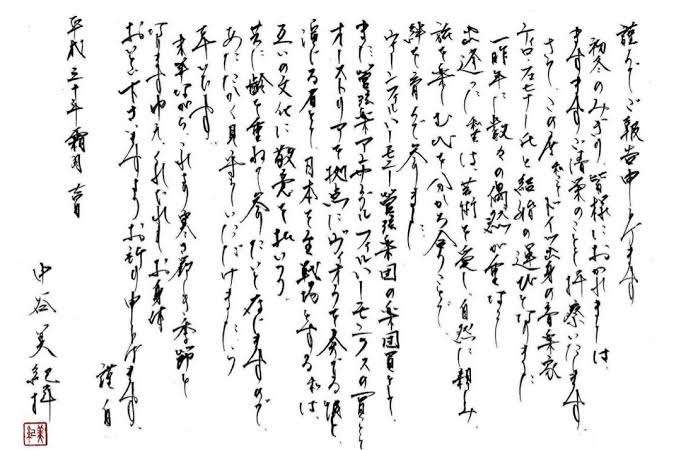 謹んでご報告申し上げます
初冬のみぎり、皆様におかれましては、
ますますご清栄のことと拝察いたします。
さて、この度私ことドイツ出身の音楽家
ティロ・フェヒナー氏と結婚の運びとなりました。
一昨年に数々の偶然が重なり
出逢った私達は、芸術を愛し、自然に親しみ
旅を楽しむ心を分かち合うことで
絆を育んで参りました。
ウィーンフィルハーモニー管弦楽団の楽団員として
また、管弦楽アンサンブルフィルハーモニクスの一員として
オーストリアを拠点にヴィオラを奏でる彼と、
演じる者として日本を主戦場とする私は、
互いの文化に敬意を払いつつ
共に齢を重ねて参りたいと存じますので
あたたかく見守っていただけましたら
幸いです。
末筆ながら、これより寒さ厳しき季節と
なりますゆえ、くれぐれもお身体
おいとい下さいますようお祈り申し上げます。
謹白
平成三十年霜月吉日
中谷美紀拝
美紀